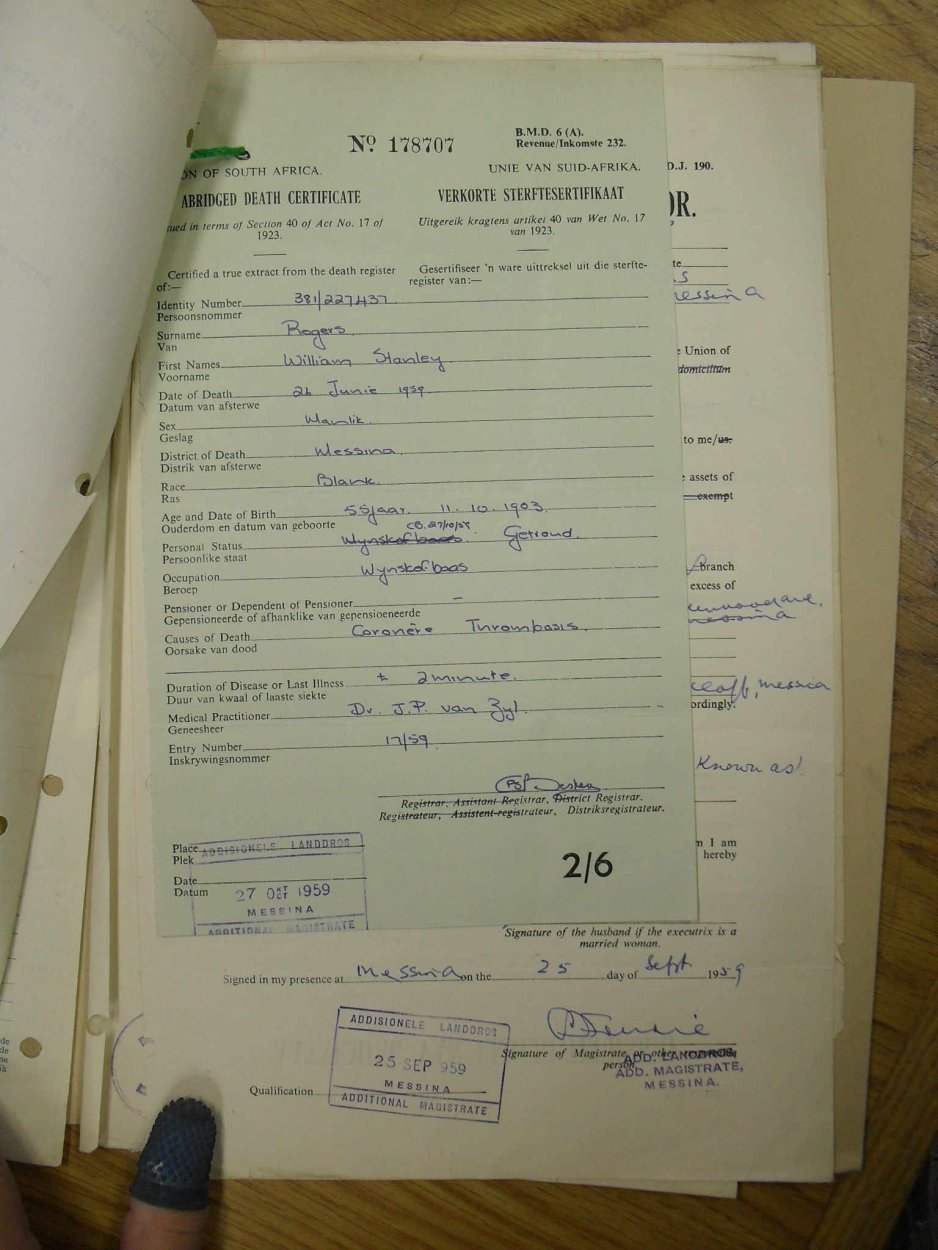 Nº 178707
B.M.D. 6 (A).
Revenue/Inkomste 232.
ON OF SOUTH AFRICA.
UNIE VAN SUID-AFRIKA.
ABRIDGED DEATH CERTIFICATE
VERKORTE STERFTESERTIFIKAAT
ued in terms of Section 40 of Act No. 17 of
1923.
Uitgereik kragtens artikel 40 van Wet No. 17
van 1923.
Certified a true extract from the death register
of:—
Gesertifiseer 'n ware uittreksel uit die sterfte-
register van:—
Identity Number 381/227437
Persoonsnommer
Surname Rogers
Van
First Names William Stanley
Voorname
Date of Death 26 Junie 1959
Datum van afsterwe
Sex Manlik
Geslag
District of Death Messina
Distrik van afsterwe
Race Blank
Ras
Age and Date of Birth 55 jaar. 11. 10. 1903.
Ouderdom en datum van geboorte
27/10/59
Personal Status Getroud.
Persoonlike staat
Occupation Mynskofbaas
Beroep
Pensioner or Dependent of Pensioner –
Gepensioneerde of afhanklike van gepensioeneerde
Causes of Death Coronêre Thrombosis
Oorsake van dood
Duration of Disease or Last Illness ± 2 minute.
Duur van kwaal of laaste siekte
Medical Practitioner Dr. J.P. van Zyl
Geneesheer
Entry Number 17/59
Inskrywingsnommer
Registrar, Assistant Registrar, District Registrar.
Registrateur, Assistent-registrateur, Distriksregistrateur.
Place
Plek
ADDISIONELE LANDDROS
Date
Datum
27 OCT 1959
MESSINA
ADDITIONAL MAGISTRATE
2/6
D.J. 190.
OR.
te
s
essina
e Union of
domicilium
to me/us.
e assets of
exempt
Branch
excess of
messina
messina
ordingly.
Known as
n I am
hereby
Signature of the husband if the executrix is a
married woman.
Signed in my presence at Messina on the 25 day of Sept 1959
ADDISIONELE LANDDROS
25 SEP 959
MESSINA
ADDITIONAL MAGISTRATE
Signature of Magistrate or other
person
ADD. LANDDROS.
ADD. MAGISTRATE,
MESSINA.
Qualification